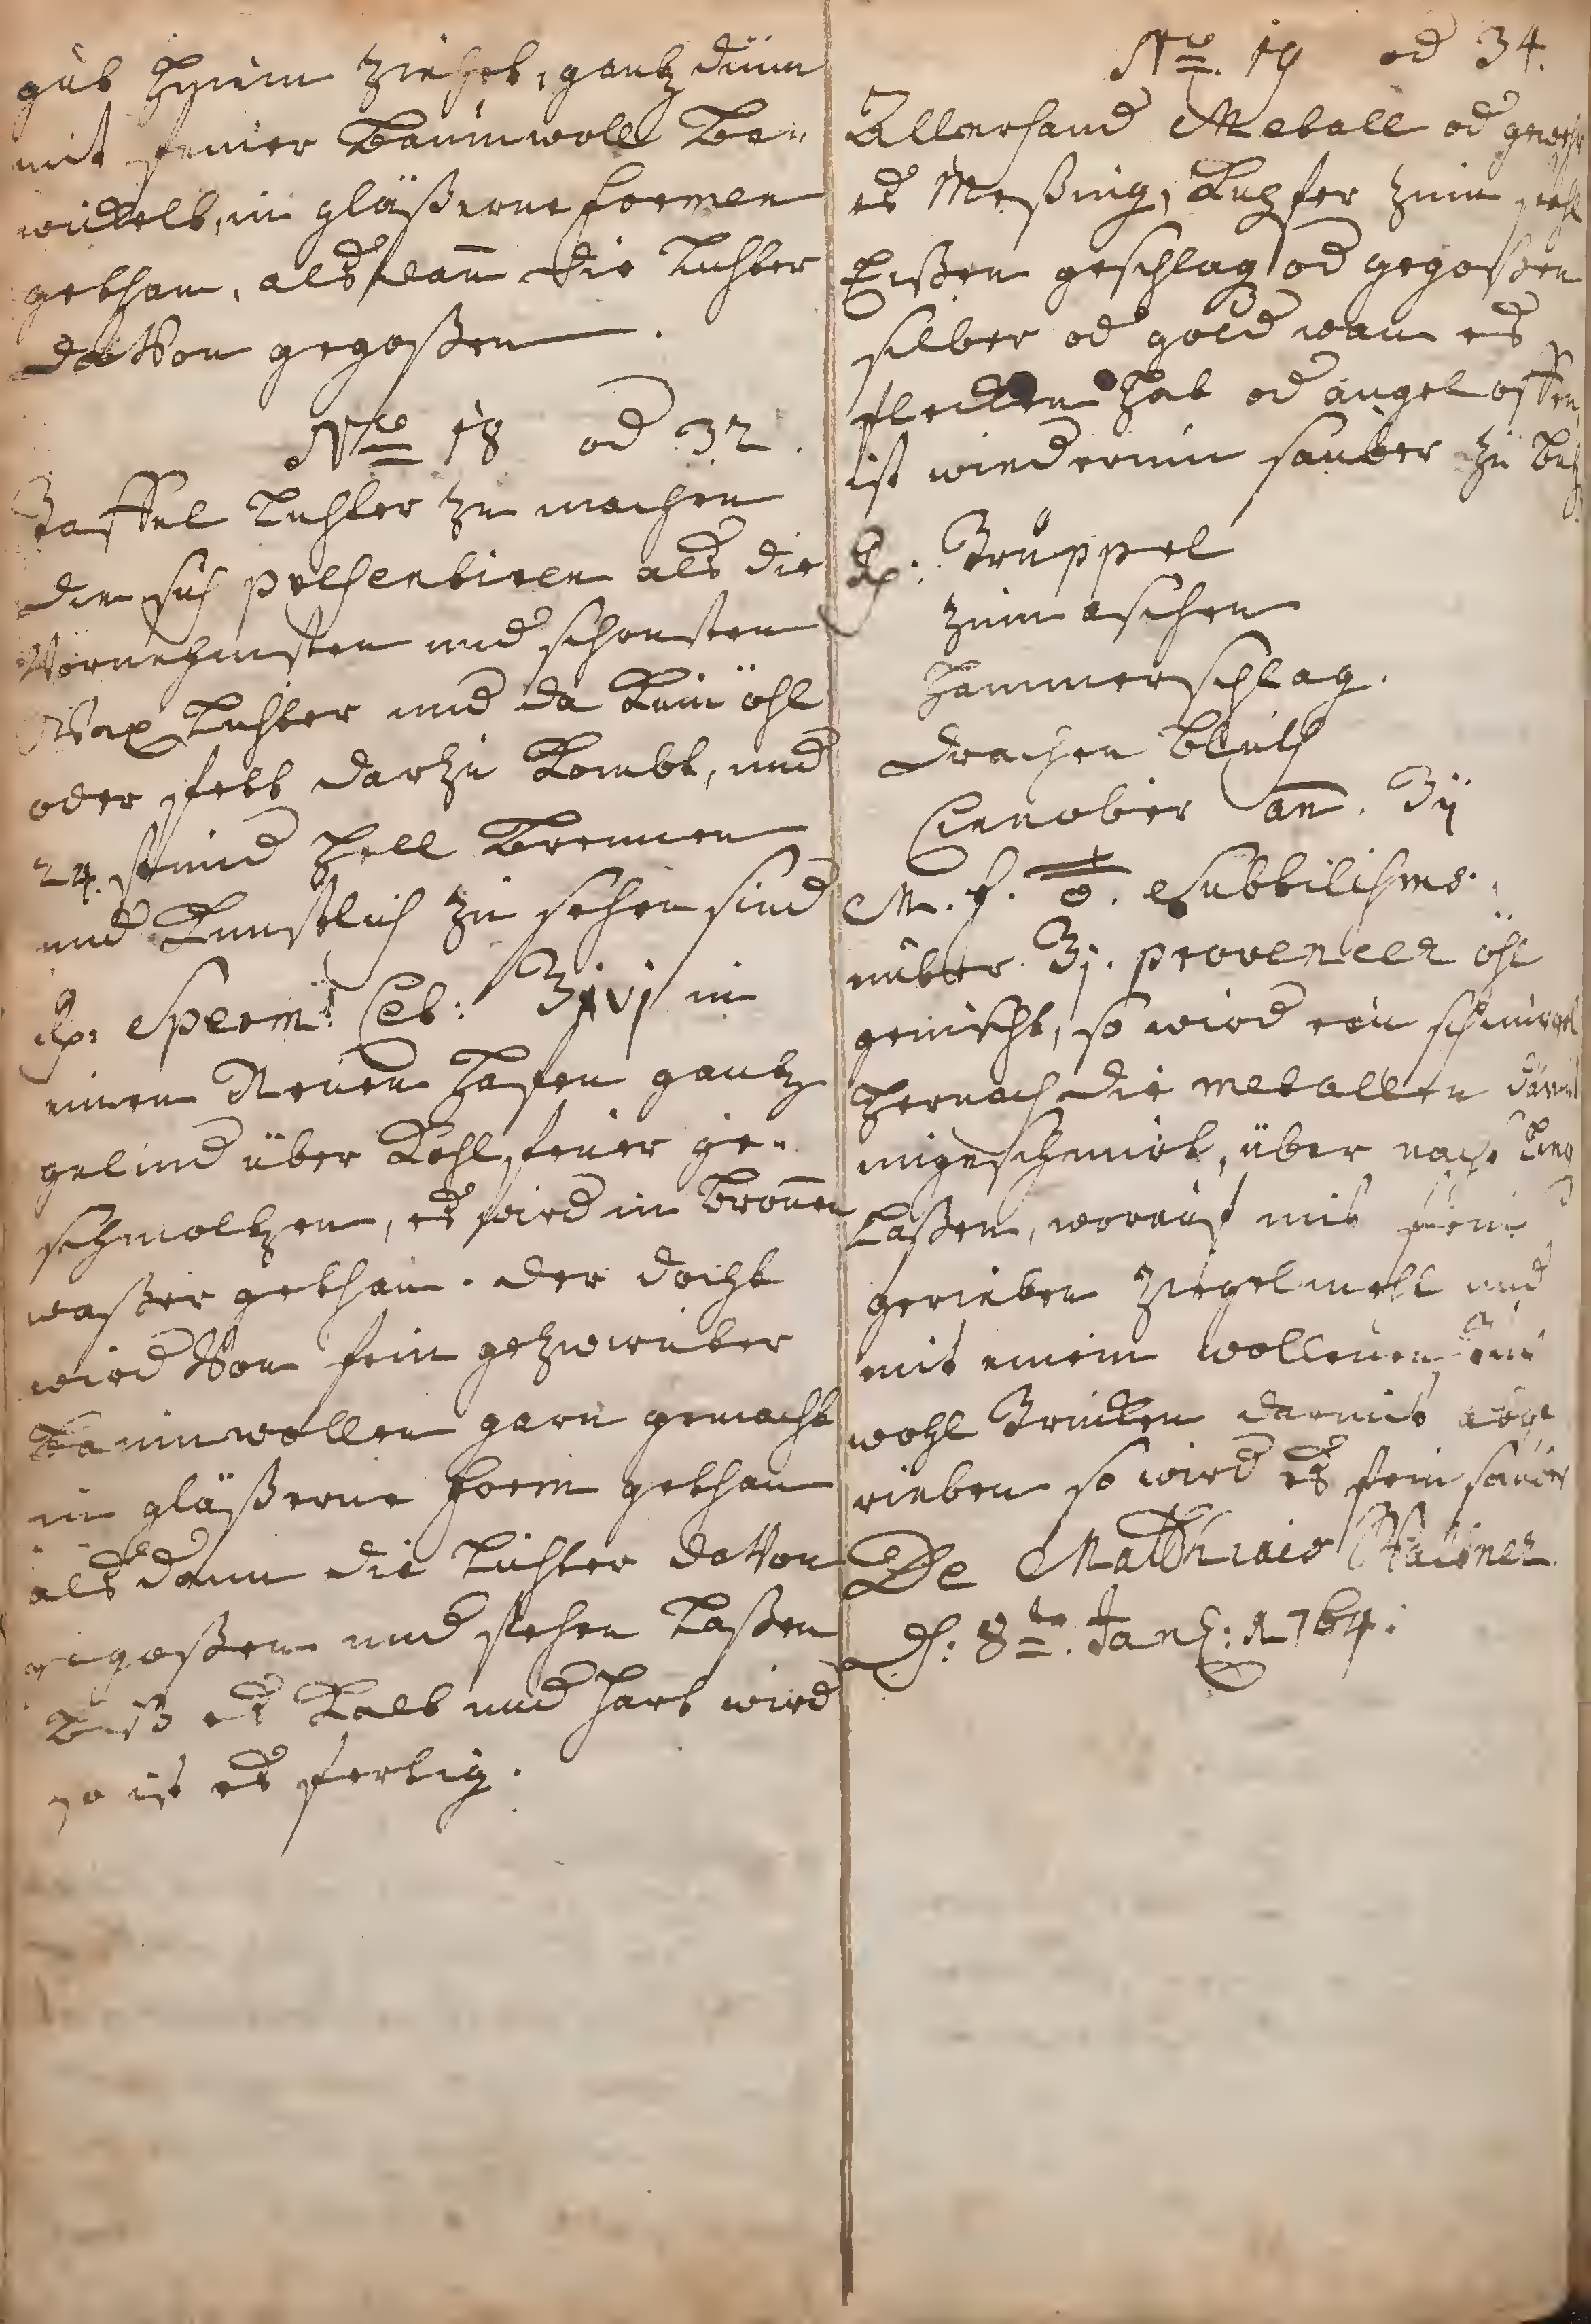 gut hinein ziehet, gantz dünn
mit feiner Baumwoll be-
wickelt, in gläßerne formen
gethan, alsdan̄ die Liechter
davon gegoßen.
No 18 od 32.
Taffel Liechter zu machen
die sich præsentiren als die
Vornehmsten und schonsten
Wax Liechter und da kein öhl
oder fett darzu kombt, und
24. stund hell brennen
und künstlich zu sehen sind
Rp: Sperm: Cet: ℥xvj in
einen Neuen Hafen gantz
gelind über Kohl feuer ge-
schmoltzen, es wird in bron̄en
waßer gethan. der docht
wird von fein gezwirnter
Baumwollen garn gemacht
in gläßerne form gethan
alsdann die Liechter davon
gegoßen und stehen laßen
biß es kalt und hart wird
so ist es fertig.
No. 19 od 34.
Allerhand Metall od
es Meßing, Kupfer Zinn
Eißen geschlag od gegoßen
silber od gold wan es
flecken hat od angeloffen
ist wiederum sauber zu
Rp: Trüppel
Zinn aschen
Hammerschlag.
Drachen Bluth
Cinnober an̄. ℥ij
M. f. subtilissms.
unter ℥j. provencer öhl
gemischt, so wird ein schmirgel
hernach die metallen damit
eingeschmirt, über nacht
laßen, worauf mit fein
gerieben Ziegelmehl und
mit einem wollenen
wohl trucken darmit abge
rieben so wird es fein sauber
De Matthiaes
D: 8te. Jan: 1764.